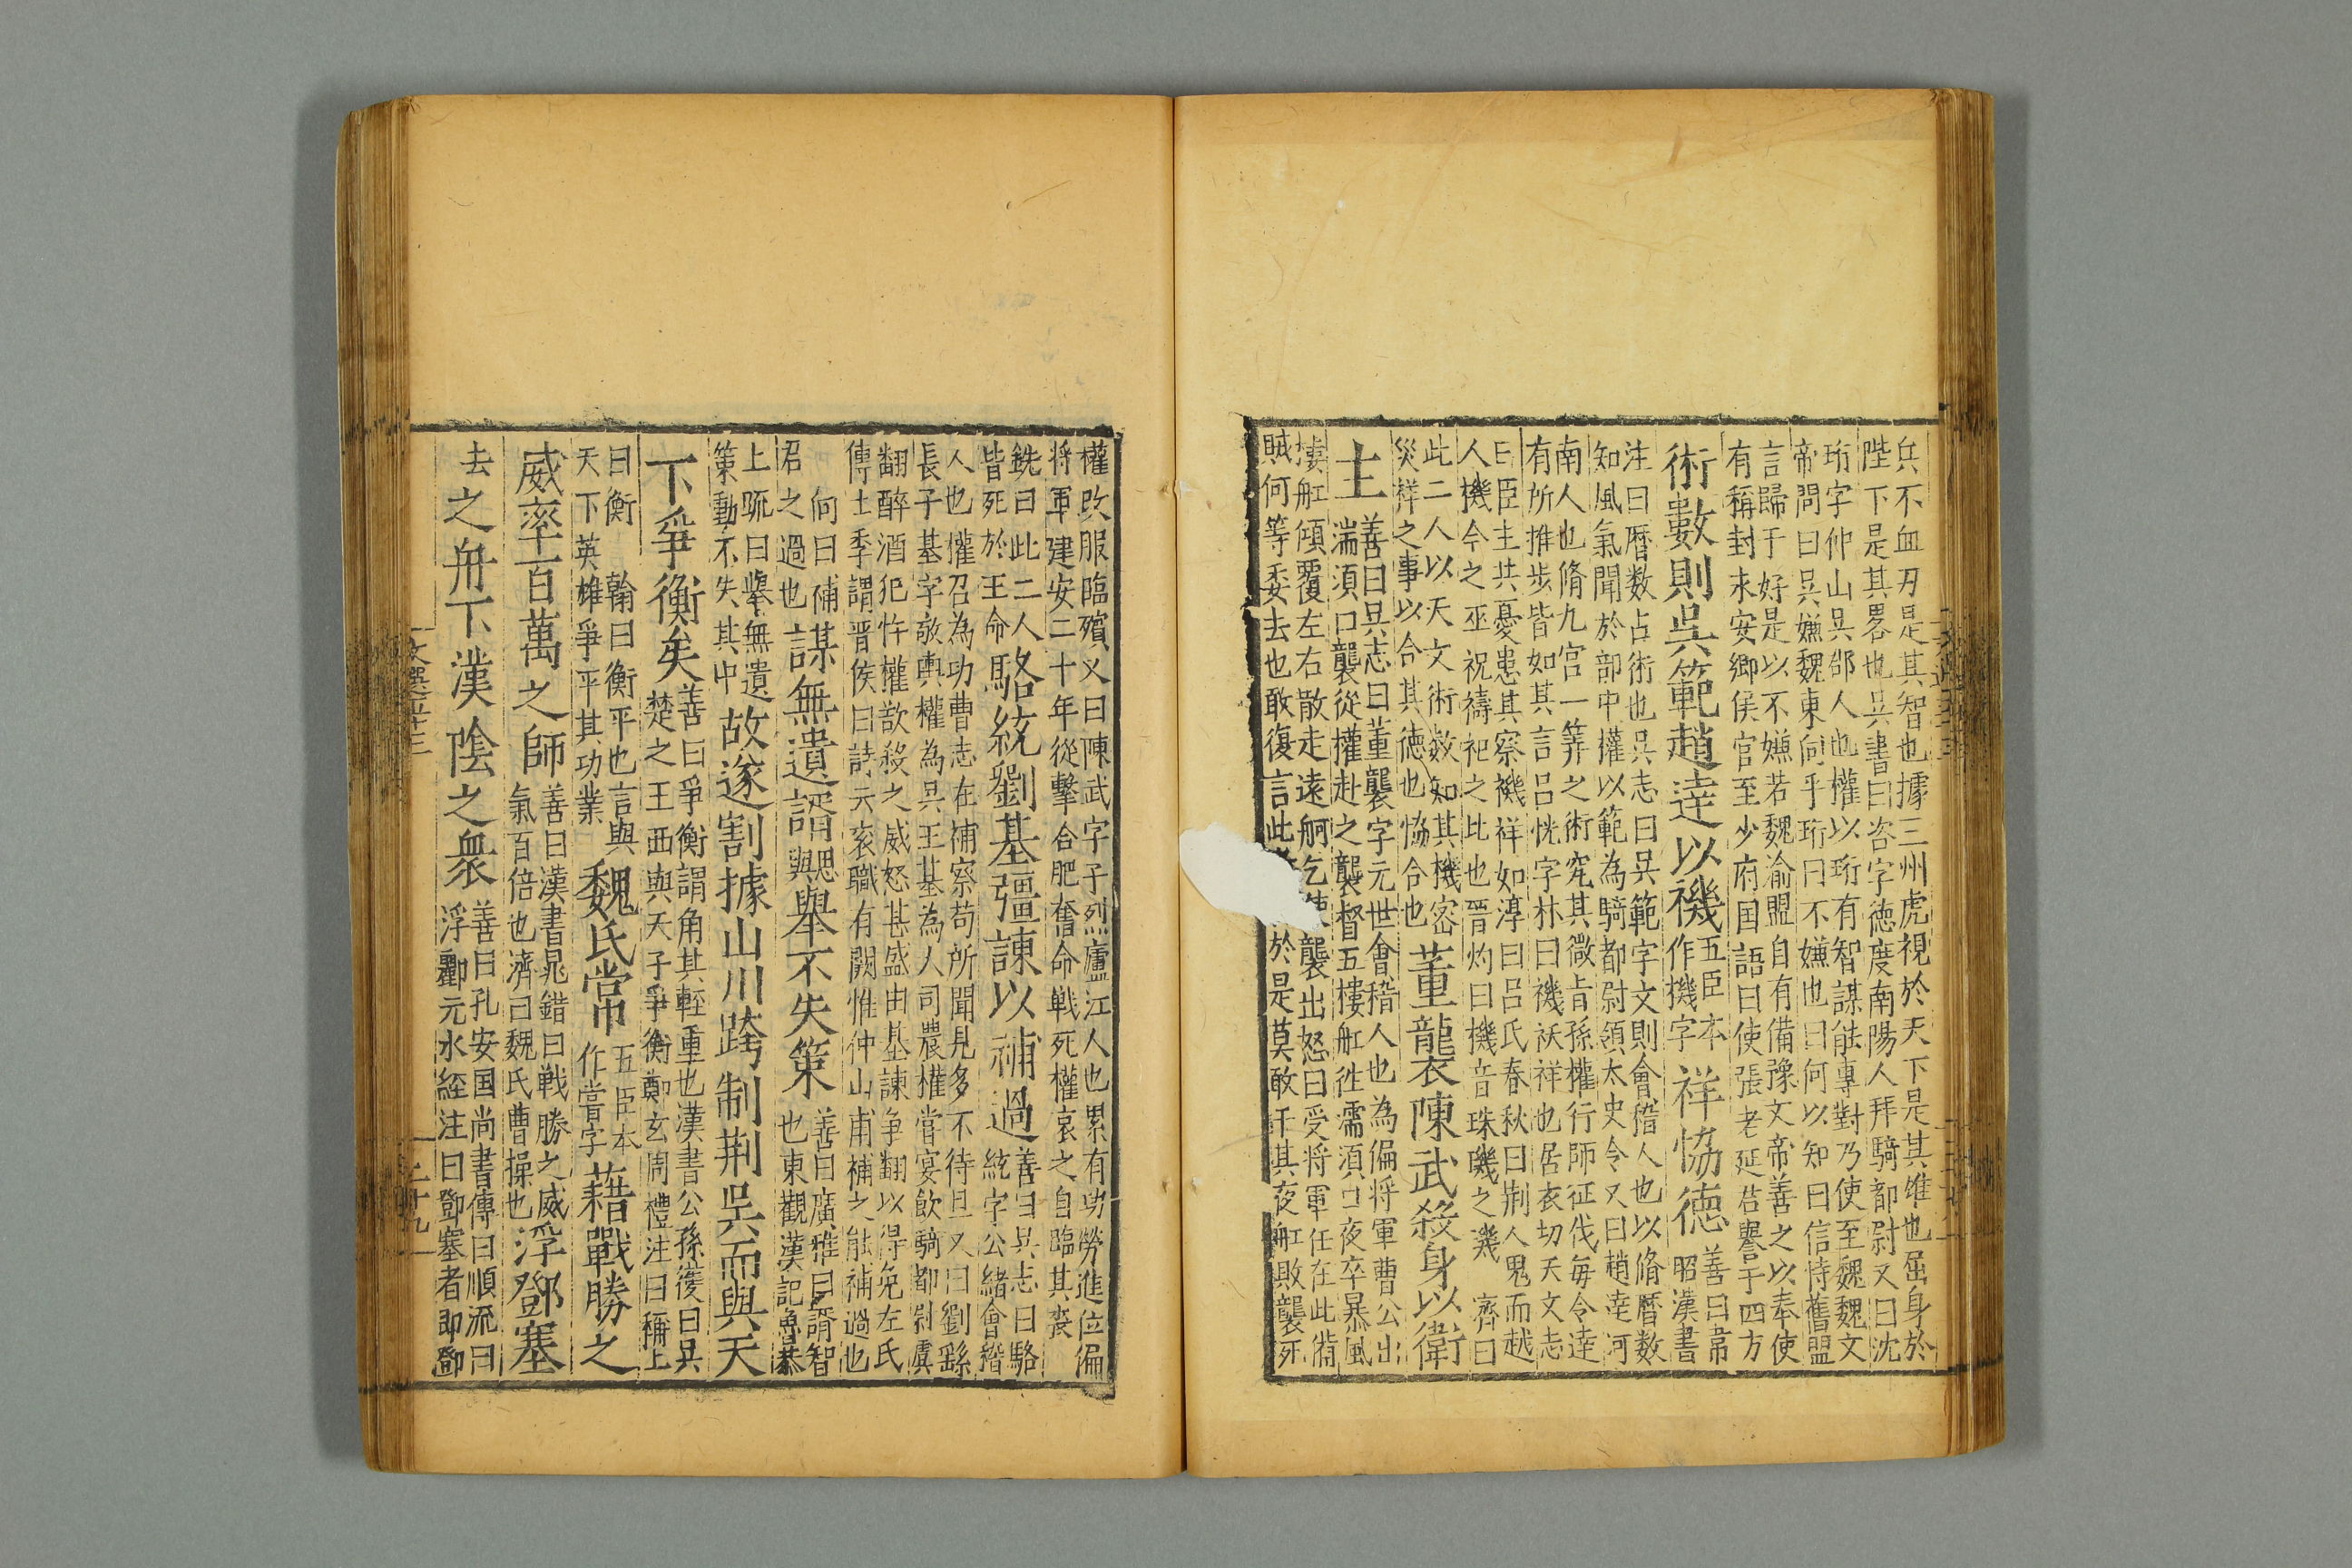 兵不血刃是其智也據三州虎視於天下是其雄也屈身於
陛下是其畧也吳書曰咨字德度南陽人拜騎都尉又曰沈
珩字仲山吳郡人也權以珩有智謀能專對乃使至魏魏文
帝問曰吳嫌魏東向乎珩曰不嫌也曰何以知曰信恃舊盟
言歸于好是以不嫌若魏渝盟自有備豫文帝善之以奉使
有稱封永安鄉侯官至少府国語曰使張老延君譽于四方
術數則吳範趙逹以禨五臣本作機字祥恊德善曰韋昭漢書
注曰曆数占術也吳志曰吳範字文則會稽人也以脩曆数
知風氣聞於部中權以範為騎都尉領太史令又曰趙逹河
南人也脩九宫一筭之術究其微旨孫權行師征伐每令逹
有所推步皆如其言吕忱字林曰禨祅祥也居衣切天文志
曰臣主共憂患其察禨祥如淳曰吕氏春秋曰荆人鬼而越
人機今之巫祝禱祀之比也晋灼曰機音珠璣之璣 濟曰
此二人以天文術数知其機密
災祥之事以合其德也恊合也董襲陳武殺身以衛
主善曰吳志曰董襲字元世會稽人也為偏将軍曹公出
濡須口襲從權赴之襲督五樓舡往濡湏口夜卒暴風
樓舡傾覆左右散走遠舸乞使襲出怒曰受将軍任在此俻
賊何等委去也敢復言此於是莫敢干其夜舡敗襲死
權改服臨殯又曰陳武字子烈廬江人也累有功勞進位偏
将軍建安二十年從擊合肥奮命戦死權哀之自臨其喪
銑曰此二人
皆死於王命駱統劉基彊諫以補過善曰吳志曰駱統字公緒會稽
人也權召為功曹志在補察苟所聞見多不待旦又曰劉繇
長子基字敬輿權為吳王基為人司農權嘗宴飲騎都尉虞
翻醉酒犯忤權欲殺之威怒甚盛由基諫争翻以得免左氏
傳士季謂晋侯曰詩云衮職有闕惟仲山甫補之能補過也
向曰補
君之過也謀無遺諝思與舉不失策善曰廣雅曰諝智也東觀漢記魯恭
上疏曰舉無遺
策動不失其中故遂割據山川跨制荆吳而與天
下爭衡矣善曰爭衡謂角其輕重也漢書公孫獲曰吳楚之王西與天子爭衡鄭玄周禮注曰稱上
曰衡 翰曰衡平也言與
天下英雄爭平其功業魏氏常五臣本作嘗字藉戰勝之
威率百萬之師善曰漢書晁錯曰戦勝之威氣百倍也濟曰魏氏曹操也浮鄧塞
去之舟下漢陰之衆善曰孔安国尚書傳曰順流曰浮酈元水經注曰鄧塞者即鄧
文選五十三
二十九